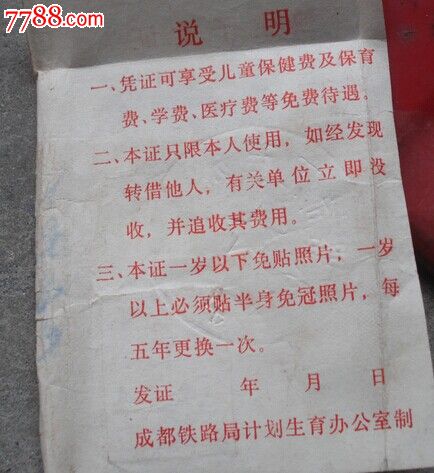 7788.com
说 明
一、凭证可享受儿童保健费及保育
费、学费、医疗费等免费待遇。
二、本证只限本人使用，如经发现
转借他人，有关单位立即没
收，并追收其费用。
三、本证一岁以下免贴照片，一岁
以上必须贴半身免冠照片，每
五年更换一次。
发证 年 月 日
成都铁路局计划生育办公室制